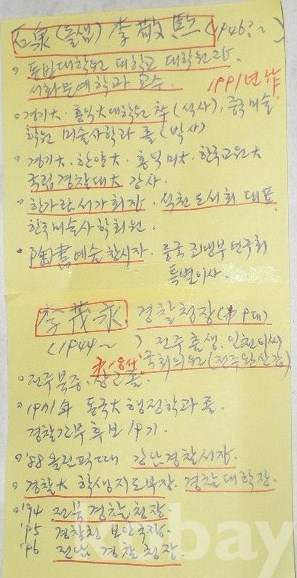 石泉(돌샘) 李敬熙 (1946~)
• 동방대학원 대학교 대학원장
서화문예학과 교수
1991년 作
• 경기大·홍익大 대학원 卒(석사), 중국미술
학원 미술사학과 졸(박사)
• 경기大·한양大·홍익미大·한국교원大
국립경찰대大 강사.
• 한가람서가회장·석천도서회 대표
한국미술사학회원.
• 陶書예술 창시자, 중국 희매부연구회
특별이사.
李茂永 경찰청장(第9代)
(1944~) 전주출생. 인천이씨
第18대 국회의원(전주완산갑)
• 전주북중·졸.
• 1971年 동국大 행정학과 졸.
경찰간부후보 19기.
• '88 올림픽때 강남경찰서장.
• 경찰大 학생지도부장. 경찰대학장.
• '94 전북경찰청장
'95 경찰청 보안국장.
'96 전남경찰청장.
bay